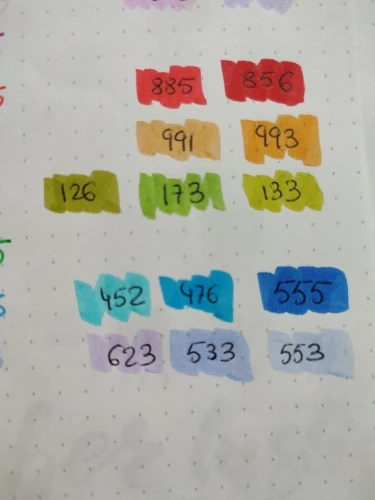 885 856
991 993
126 173 133
452 476 555
623 533 553